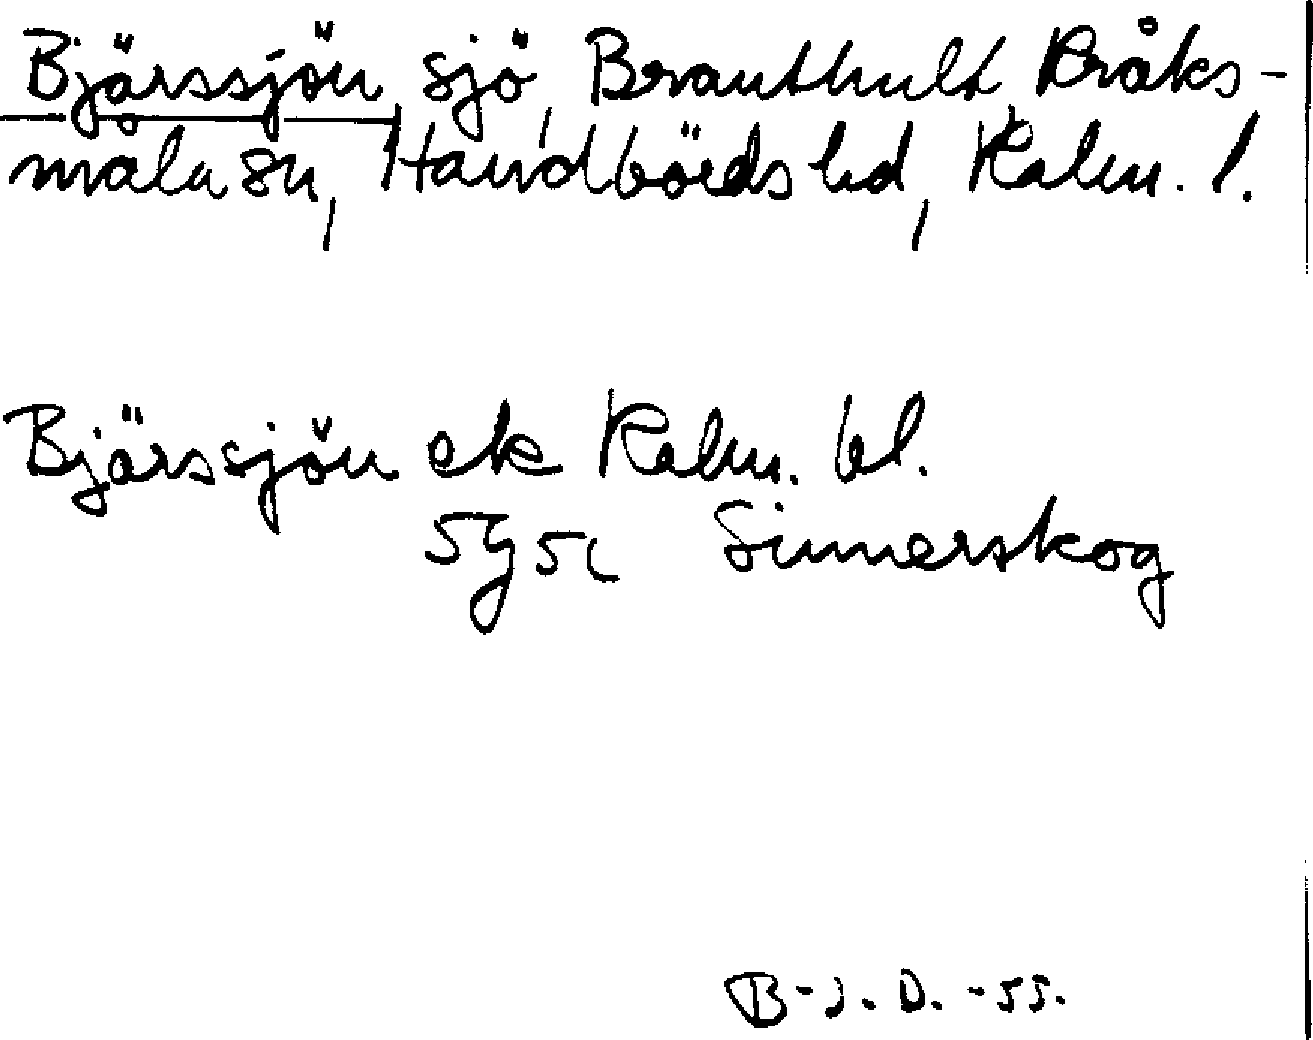 Bjärssjön, sjö, Branthult, Kråks-
måla sn, Handbörds hd, Kalm. l.
Bjärssjön ek Kalm. bl.
5g5c Simmerskog
B-J. D. -55.